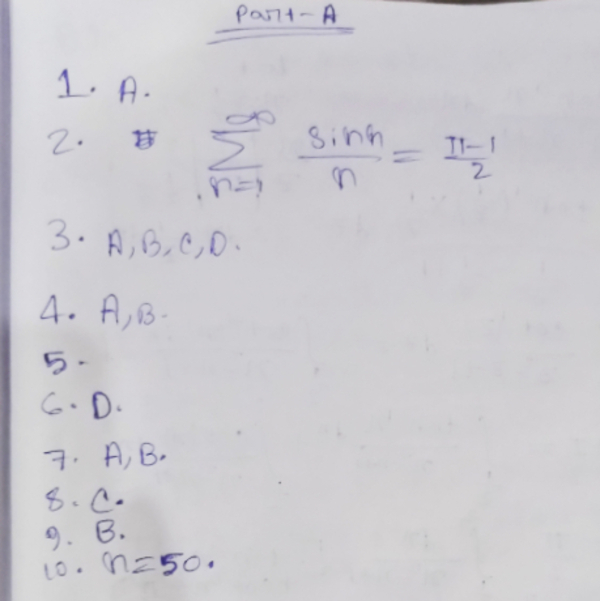 Part-A
1. A.
2. ∞∑n=1 sin n/n = π-1/2
3. A,B,C,D.
4. A,B.
5.
6. D.
7. A,B.
8. C.
9. B.
10. n=50.